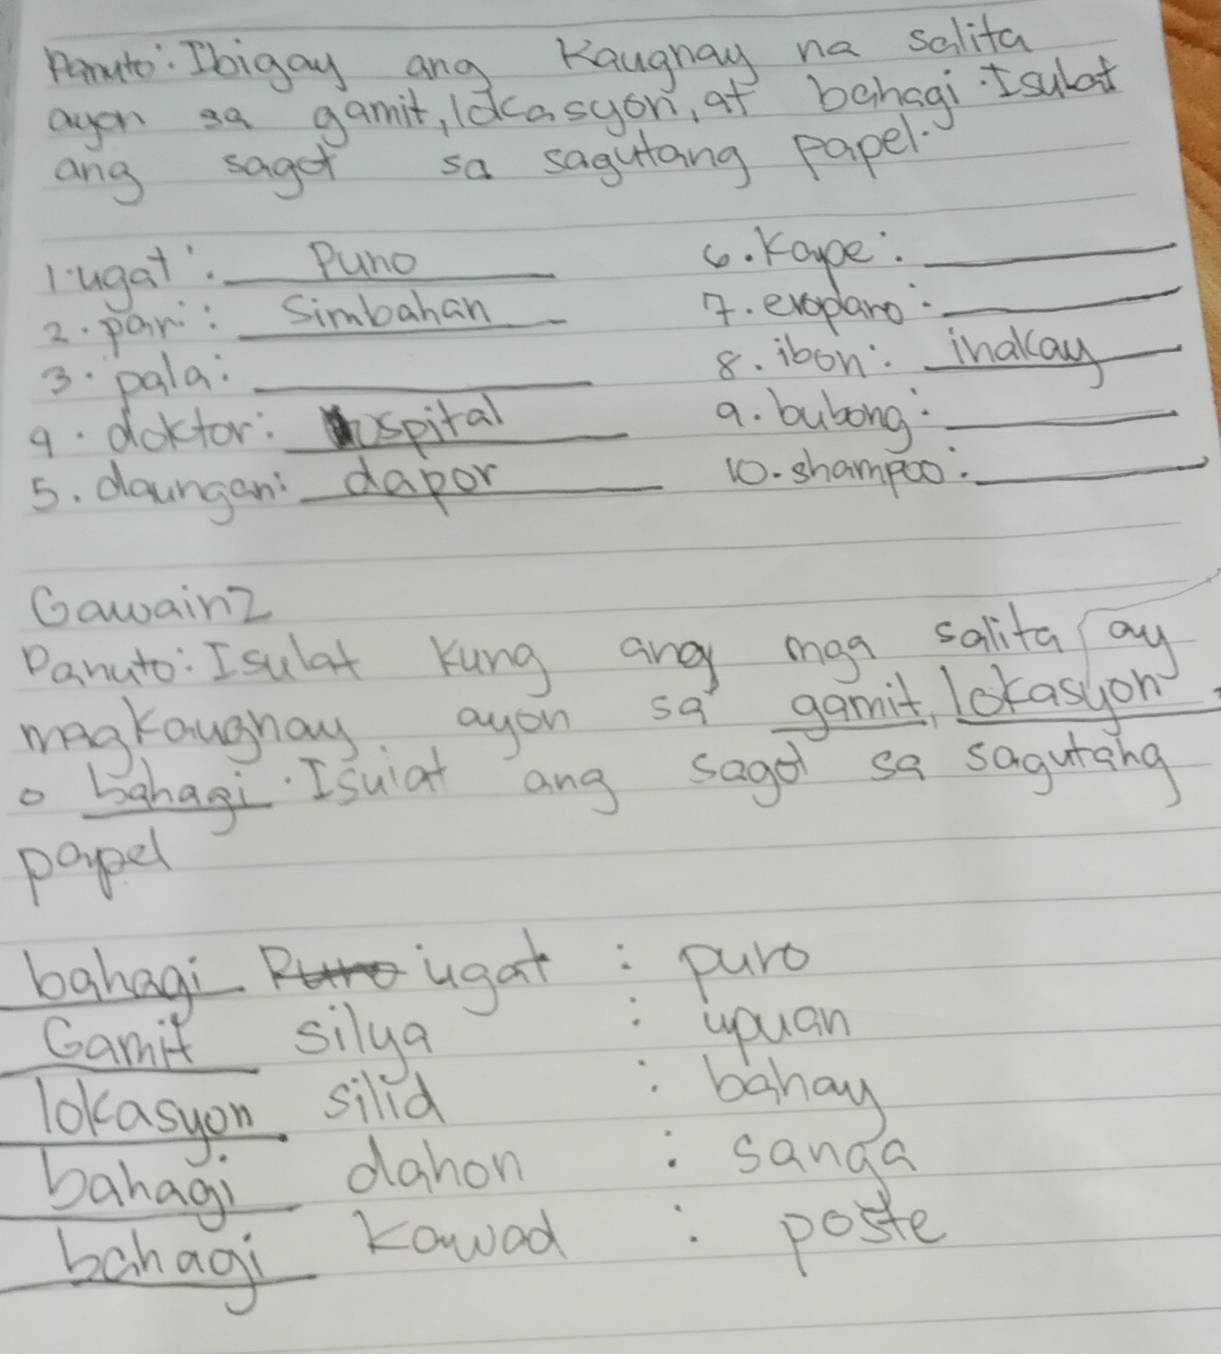 Panuto: Ibigay ang Kaugnay na salita
ayon sa gamit, lokasyon, at bahagi. Isulat
ang sagot sa sagutang papel.
1. ugat: Puno
2. pari: Simbahan
3. pala:
4. doktor: hospital
5. daungan: dapor
6. Kape:
7. eroplano:
8. ibon: inakay
9. bubong:
10. shampoo:
Gawain 2
Panuto: Isulat kung ang mga salita ay
magkaugnay ayon sa gamit, lokasyon
o bahagi. Isulat ang sagot sa sagutang
papel
bahagi ugat : puno
Gamit silya : upuan
lokasyon silid : bahay
bahagi dahon : sanga
bahagi Kawad : poste